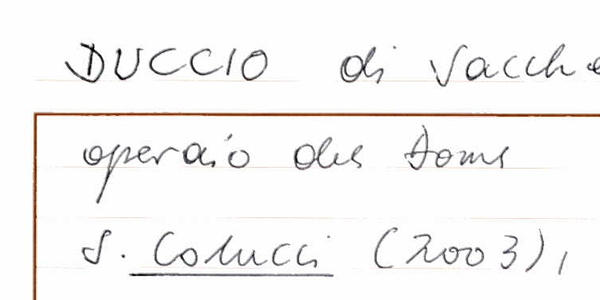 DUCCIO di Vacch
operaio del Domo
S. Colucci (2003),